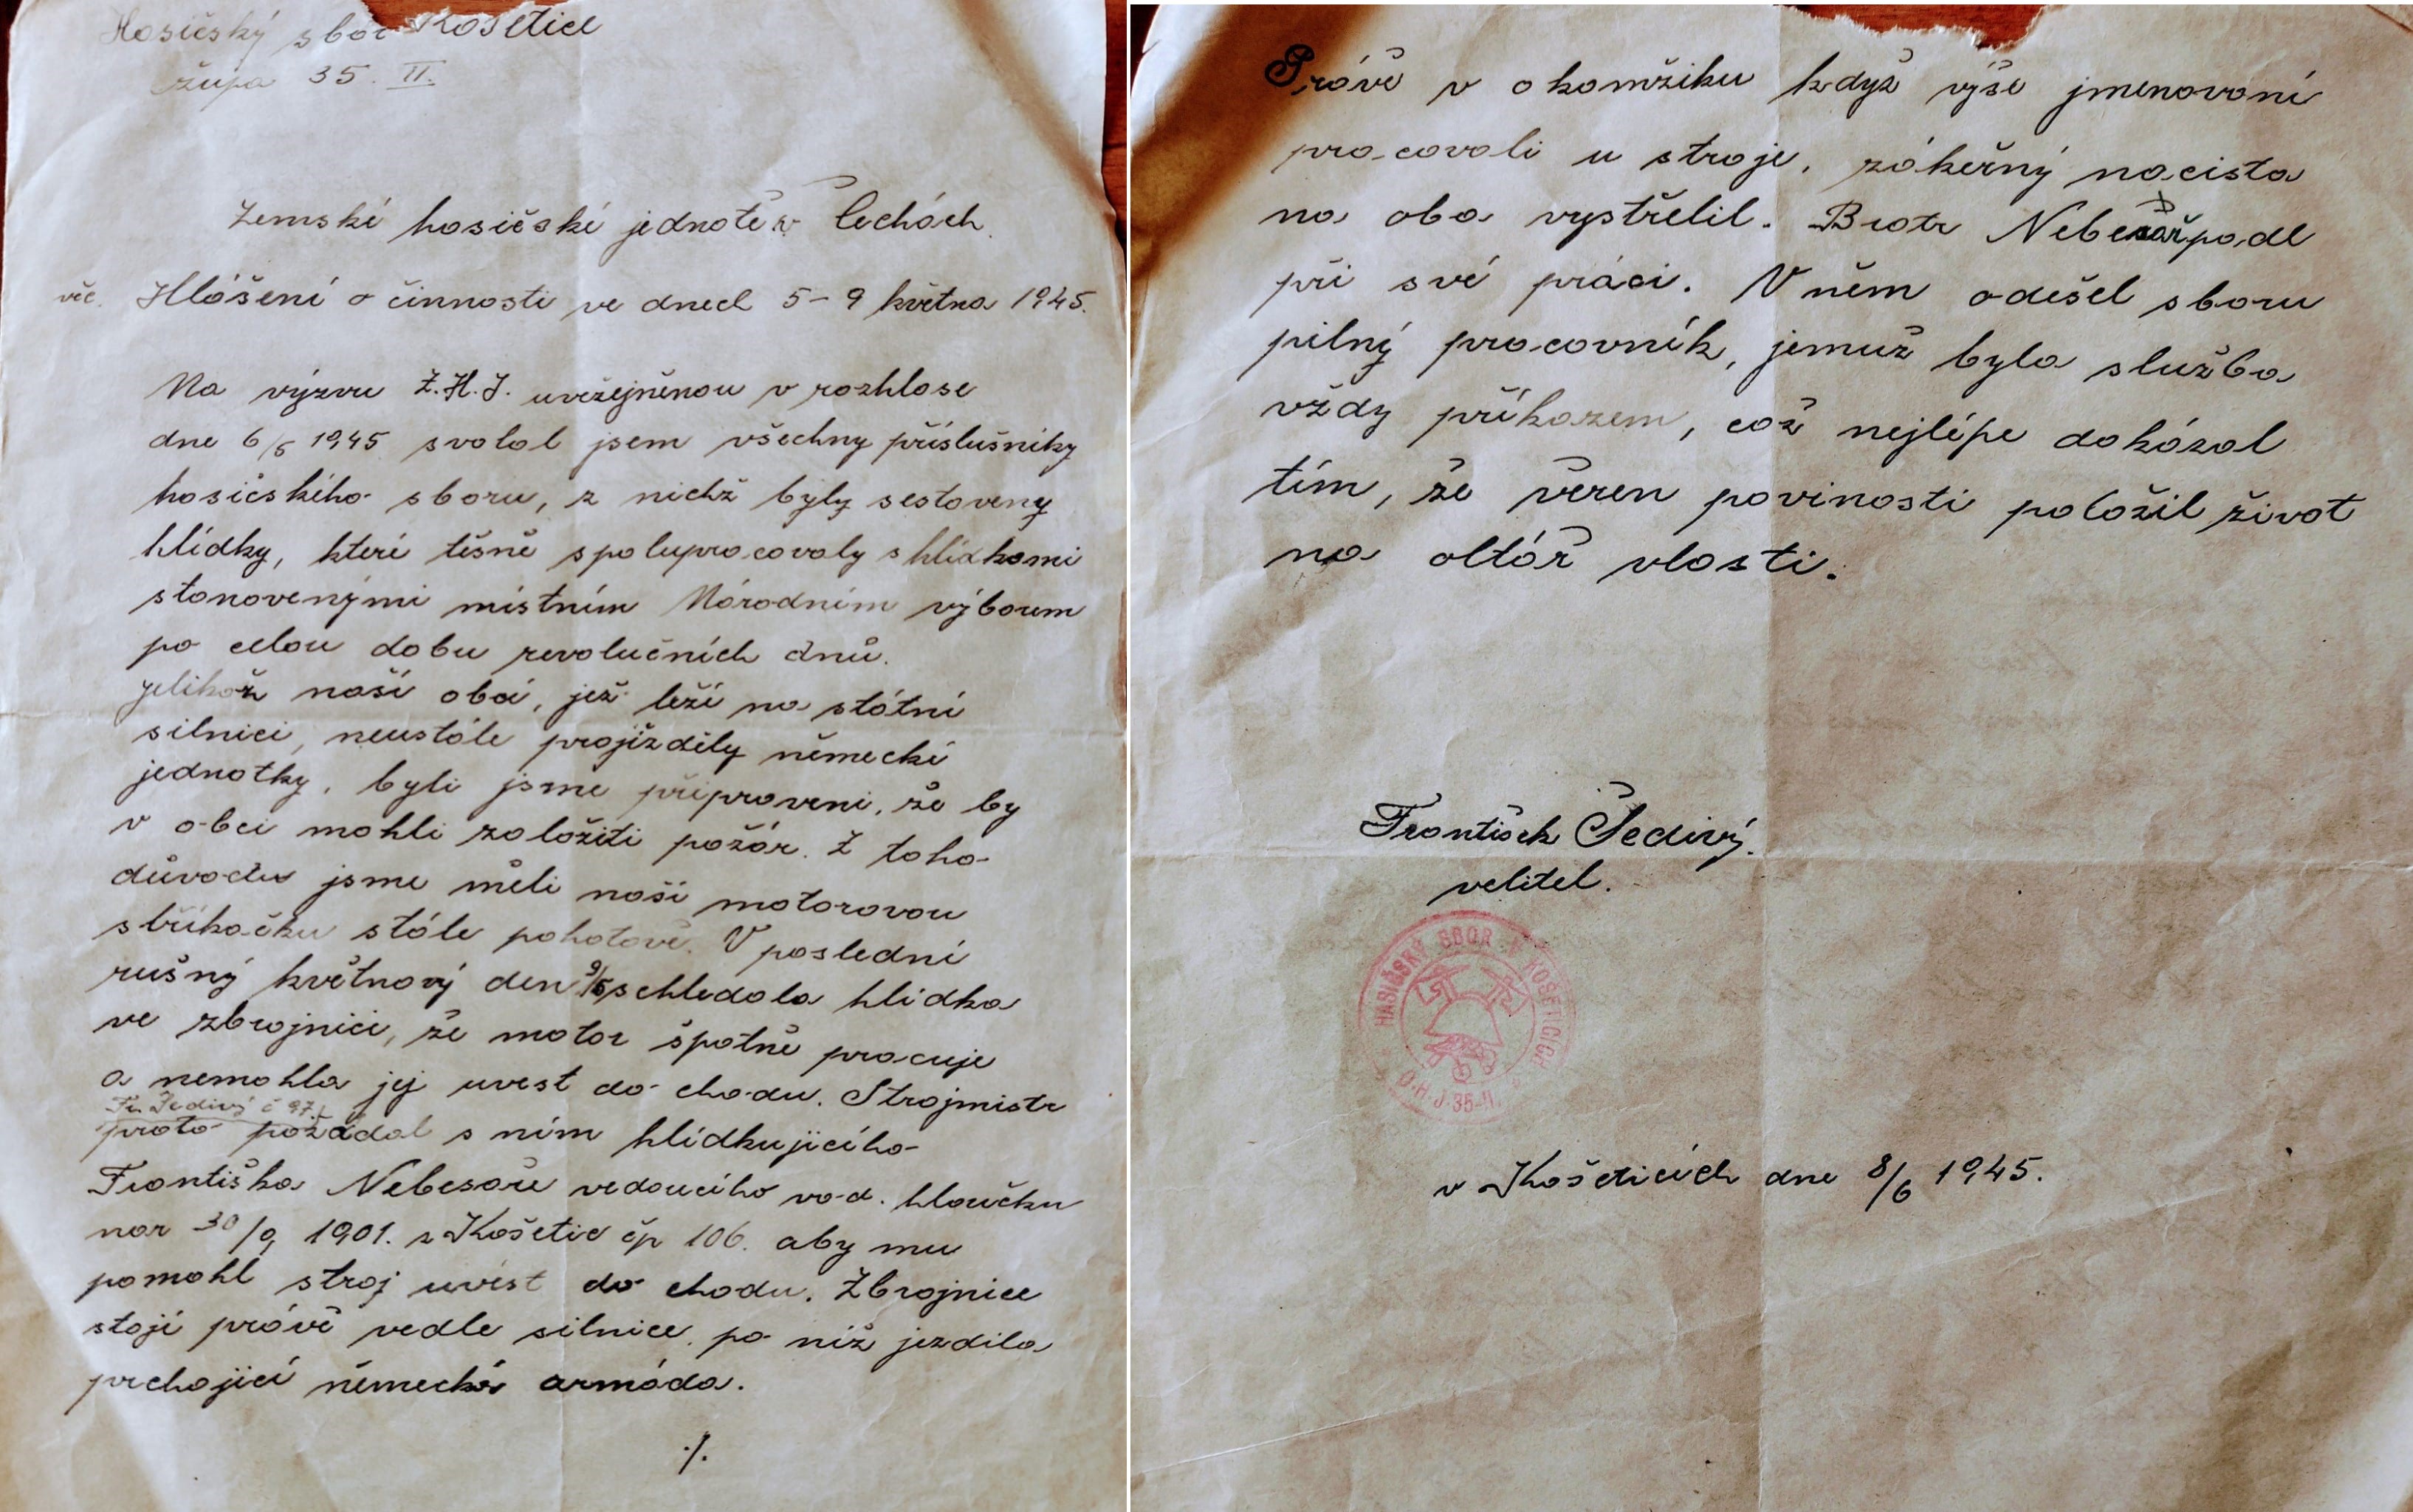 Hasičský sbor Košetice
župa 35. II.
Zemské hasičské jednotě v Čechách.
věc. Hlášení o činnosti ve dnech 5-9 května 1945.
Na výzvu Z.H.J. uveřejněnou v rozhlase
dne 6/5 1945 svolal jsem všechny příslušníky
hasičského sboru, z nichž byly sestaveny
hlídky, které těsně spolupracovaly s hlídkami
stanovenými místním Národním výborem
po celou dobu revolučních dnů.
Jelikož naší obcí, jež leží na státní
silnici, neustále projížděly německé
jednotky, byli jsme připraveni, že by
v obci mohli založiti požár. Z toho
důvodu jsme měli naši motorovou
stříkačku stále pohotově. V poslední
rušný květnový den 9/5 schledala hlídka
ve zbrojnici, že motor špatně pracuje
a nemohla jej uvest do chodu. Strojmistr
Fr. Šedivý č 97.
proto požádal s ním hlídkujícího
Františka Nebesaře vedoucího vod. hloučku
nar 30/9 1901. z Košetic čp 106. aby mu
pomohl stroj uvést do chodu. Zbrojnice
stojí právě vedle silnice, po níž jezdila
prchající německá armáda.
./.
Právě v okamžiku když výše jmenovaní
pracovali u stroje, zákeřný nacista
na oba vystřelil. Bratr Nebesář padl
při své práci. V něm odešel sboru
pilný pracovník, jemuž byla služba
vždy příkazem, což nejlépe dokázal
tím, že věren povinosti položil život
na oltář vlasti.
František Šedivý.
velitel.
HASIČSKÝ SBOR V KOŠETICÍCH
O.H.J.35-II.
v Košeticích dne 8/6 1945.